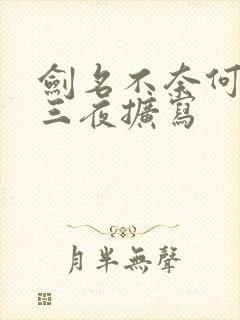 劍名不奈何
三夜擴寫
月半無聲